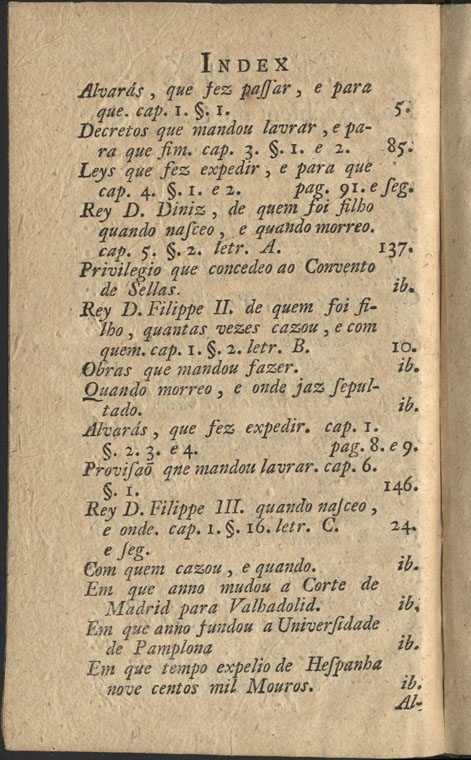 INDEX
Alvarás , que fez paſſar , e para
que. cap. 1. §. 1. 5.
Decretos que mandou lavrar , e pa-
ra que fim. cap. 3. §. 1. e 2. 85.
Leys que fez expedir , e para que
cap. 4. §. 1. e 2. pag. 91. e ſeg.
Rey D. Diniz , de quem foi filho
quando naſceo , e quando morreo.
cap. 5. §. 2. letr. A. 137.
Privilegio que concedeo ao Convento
de Sellas. ib.
Rey D. Filippe II. de quem foi fi-
lho , quantas vezes cazou , e com
quem. cap. 1. §. 2. letr. B. 10.
Obras que mandou fazer. ib.
Quando morreo , e onde jaz ſepul-
tado. ib.
Alvarás , que fez expedir. cap. 1.
§. 2. 3. e 4. pag. 8. e 9.
Proviſaõ qne mandou lavrar. cap. 6.
§. 1. 146.
Rey D. Filippe III. quando naſceo ,
e onde. cap. 1. §. 16. letr. C. 24.
e ſeg.
Com quem cazou , e quando. ib.
Em que anno mudou a Corte de
Madrid para Valhadolid. ib.
Em que anno fundou a Univerſidade
de Pamplona ib.
Em que tempo expelio de Heſpanha
nove centos mil Mouros. ib.
Al-